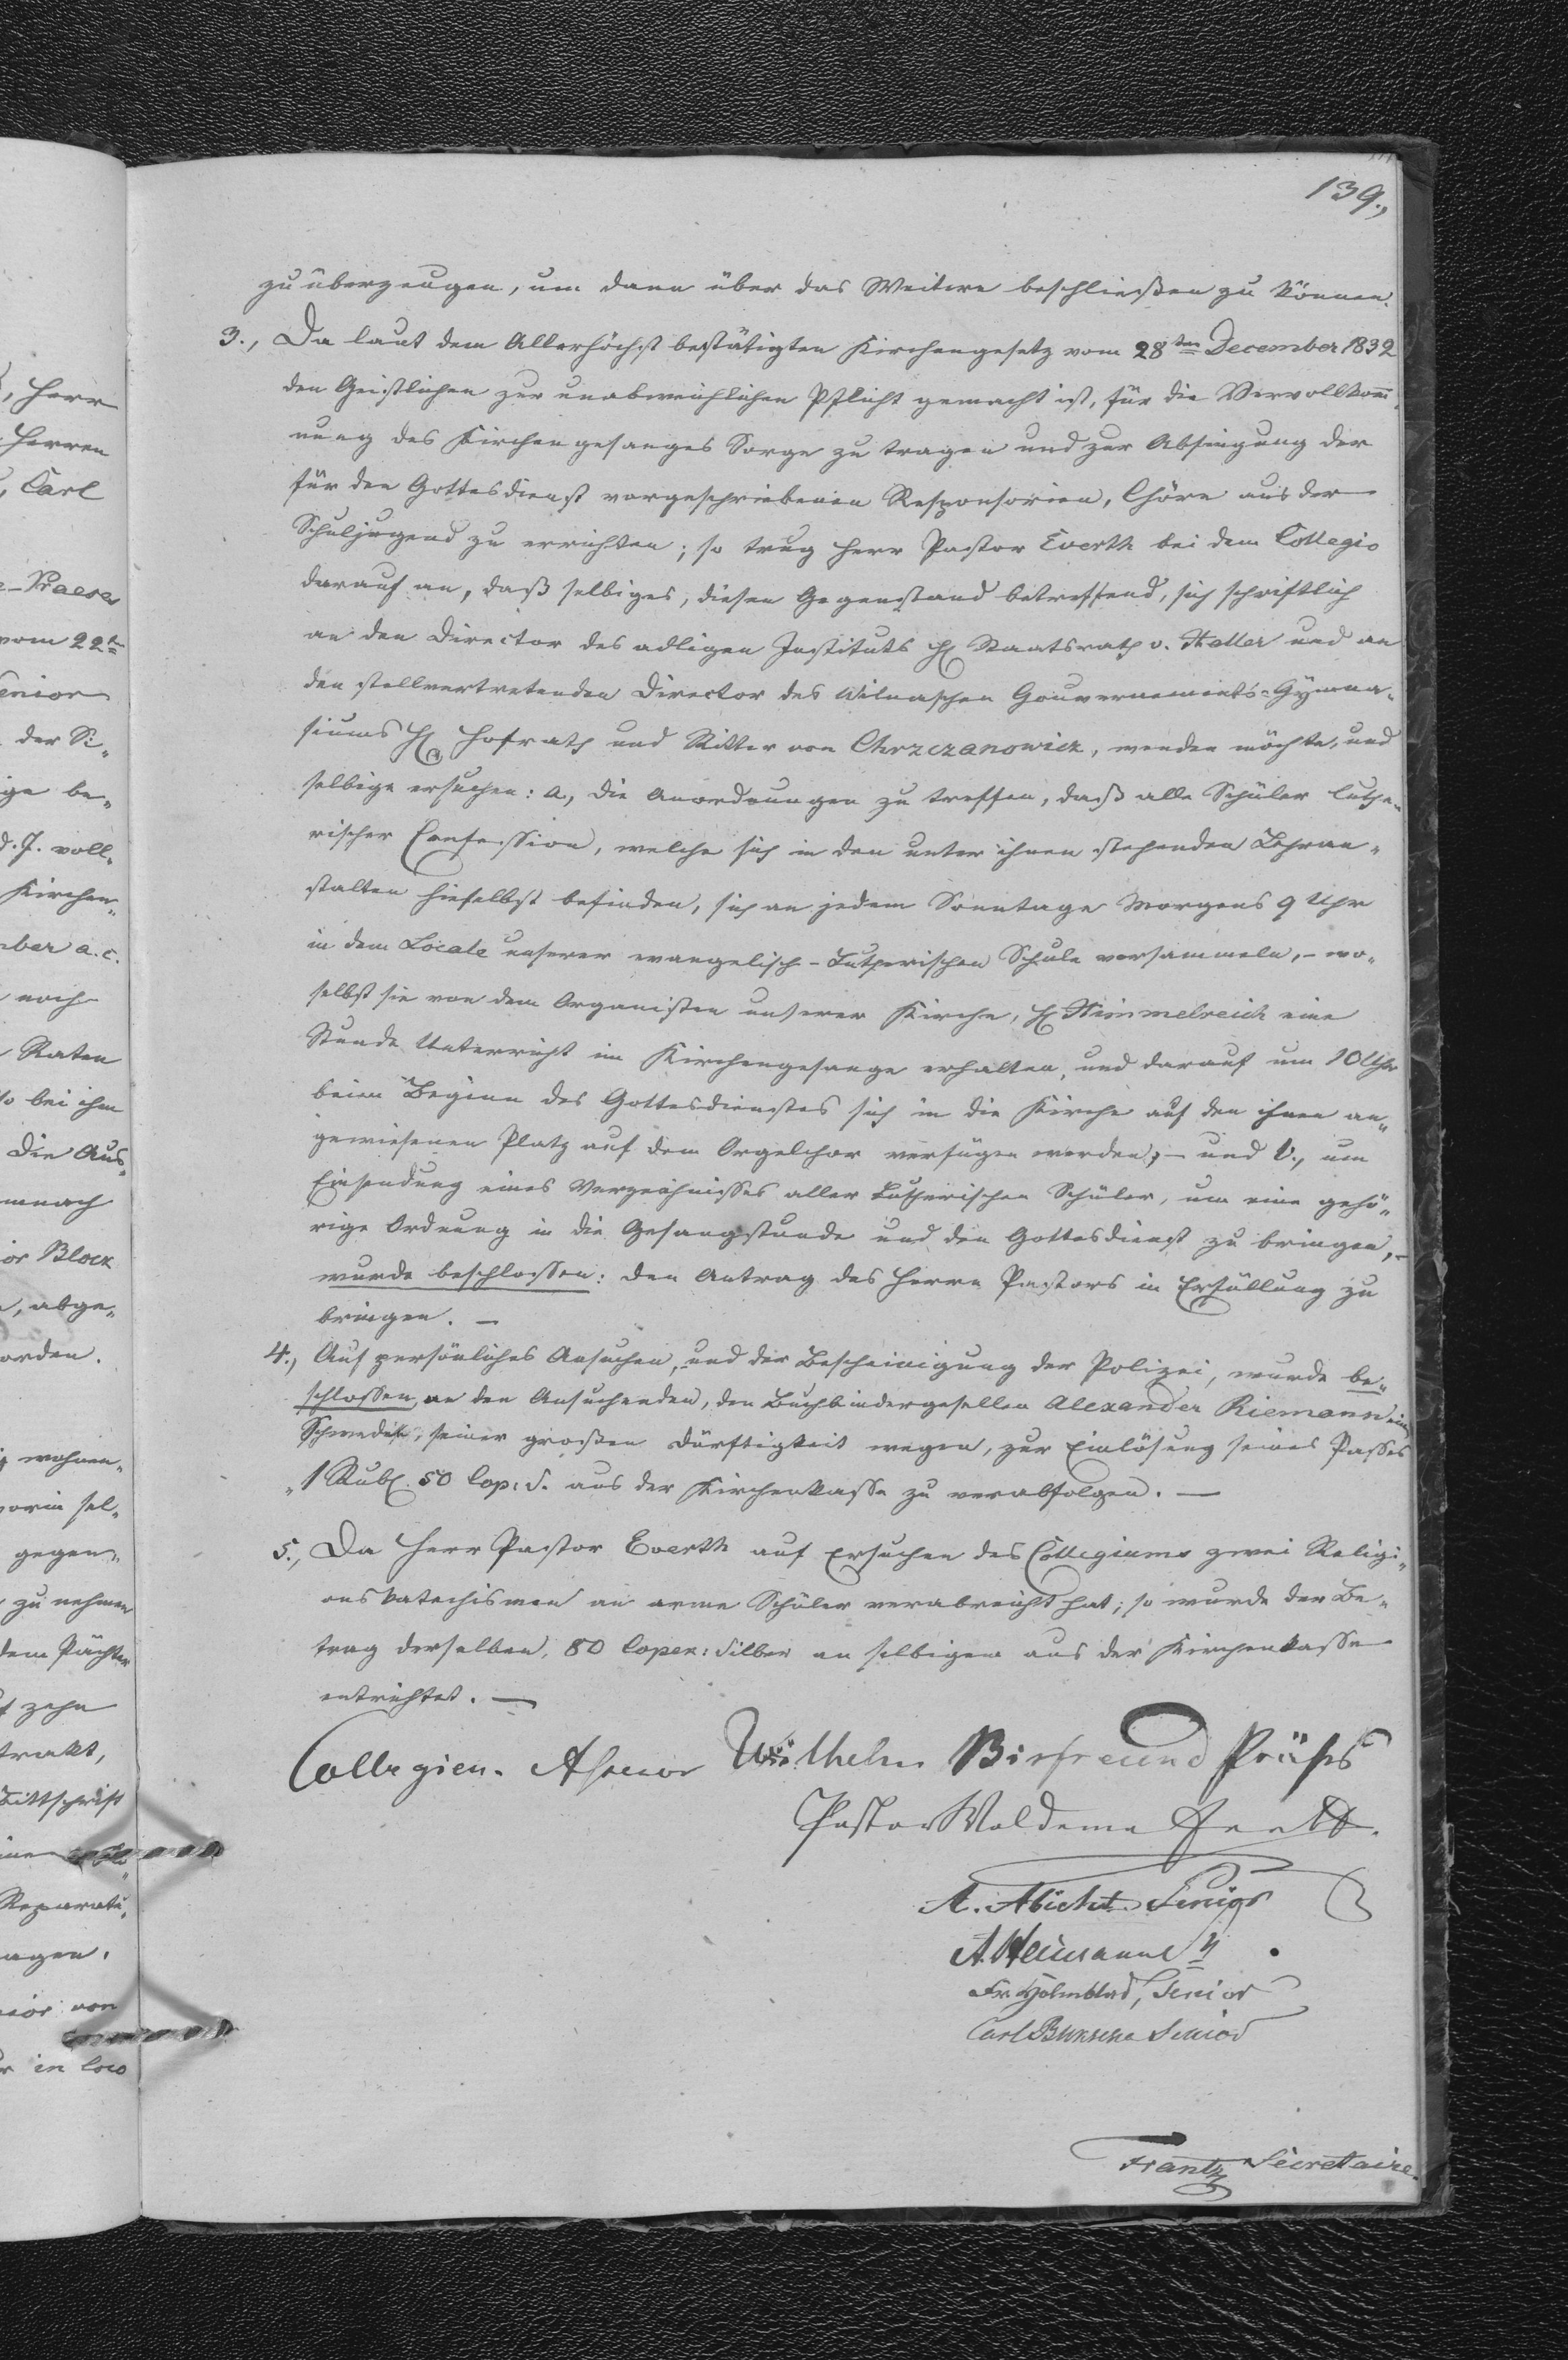 139.,
zu überzeugen, um dann über das Weitere beschließen zu können.
3., Da laut dem Allerhöchst bestätigten Kirchengesetz vom 28ten December 1832
den Geistlichen zur unabweichlichen Pflicht gemacht ist, für die Vervollkom̅„
nung des Kirchengesanges Sorge zu tragen und zur Absingung der
für den Gottesdienst vorgeschriebenen Responsorien, Chöre aus der
Schuljugend zu errichten; so trug Herr Pastor Everth bei dem Collegio
darauf an, daß selbiges, diesen Gegenstand betreffend, sich schriftlich
an den Director des adligen Instituts H Staatsrath v. Heller und an
den stellvertretenden Director des Wilnaschen Gouvernements-Gymna„
siums H Hofrath und Ritter von Chrzczanowicz, wenden möchte, und
selbige ersuchen: a, die Anordnungen zu treffen, daß alle Schüler luthe„
rischer Confession, welche sich in den unter ihnen stehenden Lehran„
stalten hieselbst befinden, sich an jedem Sonntage Morgens 9 Uhr
in dem Locale unserer evangelisch-Lutherischen Schule versammeln, – wo„
selbst sie von dem Organisten unserer Kirche, H Himmelreich eine
Stunde Unterricht im Kirchengesange erhalten, und darauf um 10 Uhr
beim Beginn des Gottesdienstes sich in die Kirche auf den ihnen an„
gewiesenen Platz auf dem Orgelchor verfügen werden; – und b., um
Einsendung eines Verzeichnisses aller Lutherischen Schüler, um eine gehö„
rige Ordnung in die Gesangstunde und den Gottesdienst zu bringen, –
wurde beschlossen: den Antrag des Herrn Pastors in Erfüllung zu
bringen. —
4., Auf persönliches Ansuchen, und der Bescheinigung der Polizei, wurde be„
schlossen, an den Ansuchenden, den Buchbindergesellen Alexander Riemann ein
Schwede, seiner großen Dürftigkeit wegen, zur Einlösung seines Passes
„1 Rubl. 50 Cop: S. aus der Kirchenkasse zu verabfolgen. —
5., Da Herr Pastor Everth auf Ersuchen des Collegiums zwei Religi„
onskatechismen an arme Schüler verabreicht hat; so wurde der Be„
trag derselben, 80 Copek: Silber an selbigen aus der Kirchenkasse
entrichtet. —
Collegien-Assessor Wilhelm Birfreund Präses
Pastor Woldemar Everth.
A. Abicht. Senior
A. Neumann
Fr. Holmblad, Senior
Carl Senior
Frantz Secretaire.
, Herr
Herren
, Carl
e-Praeses
vom 22t
enior
der Si„
ige be„
d. J. voll„
Kirchen„
mber a. c.
noch
Raten
bei ihm
Die Aus„
mnach
ior Block
, abge„
orden.
wohnen„
vorin sel„
gegen„
zu nehmen
dem Pächter
zehn
trakt,
Bittschrift
Reparatu„
agen.
nior von
in loco